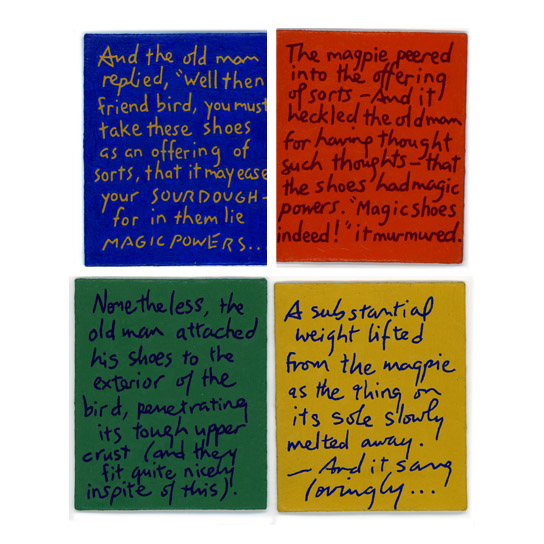 And the old man
replied, "Well then
friend bird, you must
take these shoes
as an offering of
sorts, that it may ease
your SOURDOUGH -
for in them lie
MAGIC POWERS...
The magpie peered
into the offering
of sorts - And it
heckled the old man
for having thought
such thoughts - that
the shoes had magic
powers. "Magic shoes
indeed!" it murmured.
Nonetheless, the
old man attached
his shoes to the
exterior of the
bird, penetrating
its tough upper
crust (and they
fit quite nicely
inspite of this).
A substantial
weight lifted
from the magpie
as the thing on
its sole slowly
melted away.
- And it sang
lovingly...